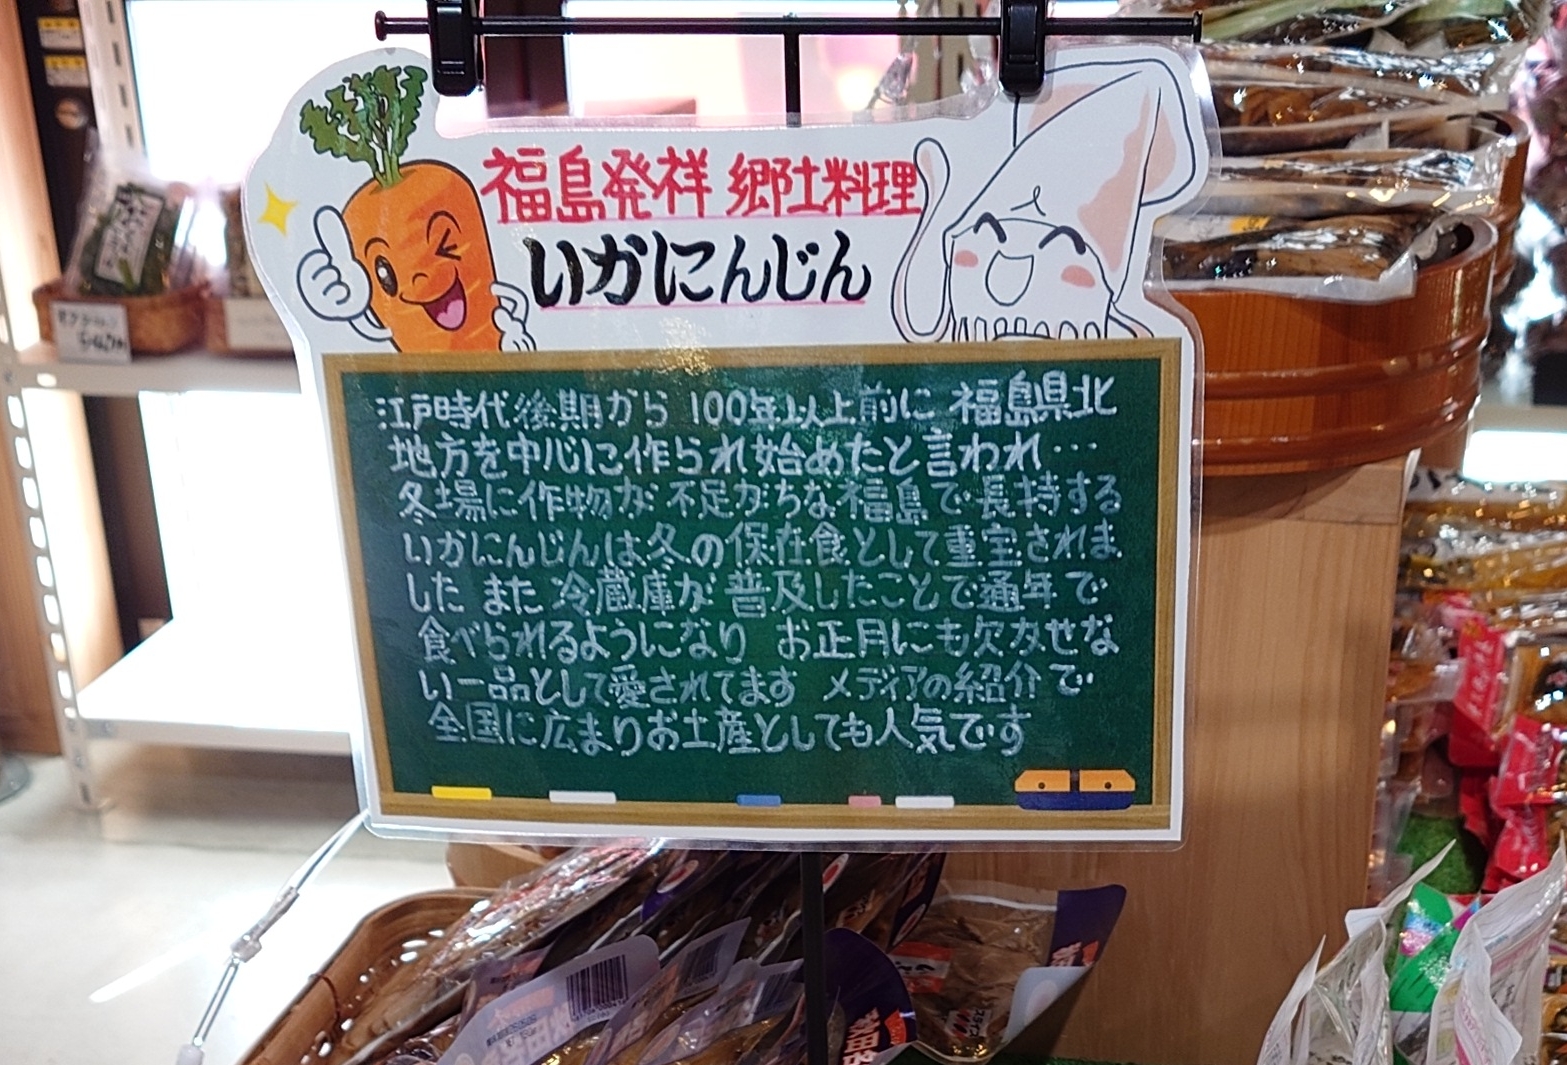 福島発祥 郷土料理
いかにんじん
江戸時代後期から 100年以上前に 福島県北
地方を中心に作られ始めたと言われ…
冬場に作物が不足がちな福島で長持する
いかにんじんは冬の保存食として重宝されま
した また 冷蔵庫が普及したことで通年で
食べられるようになり お正月にも欠かせな
い一品として愛されてます メディアの紹介で
全国に広まりお土産としても人気です